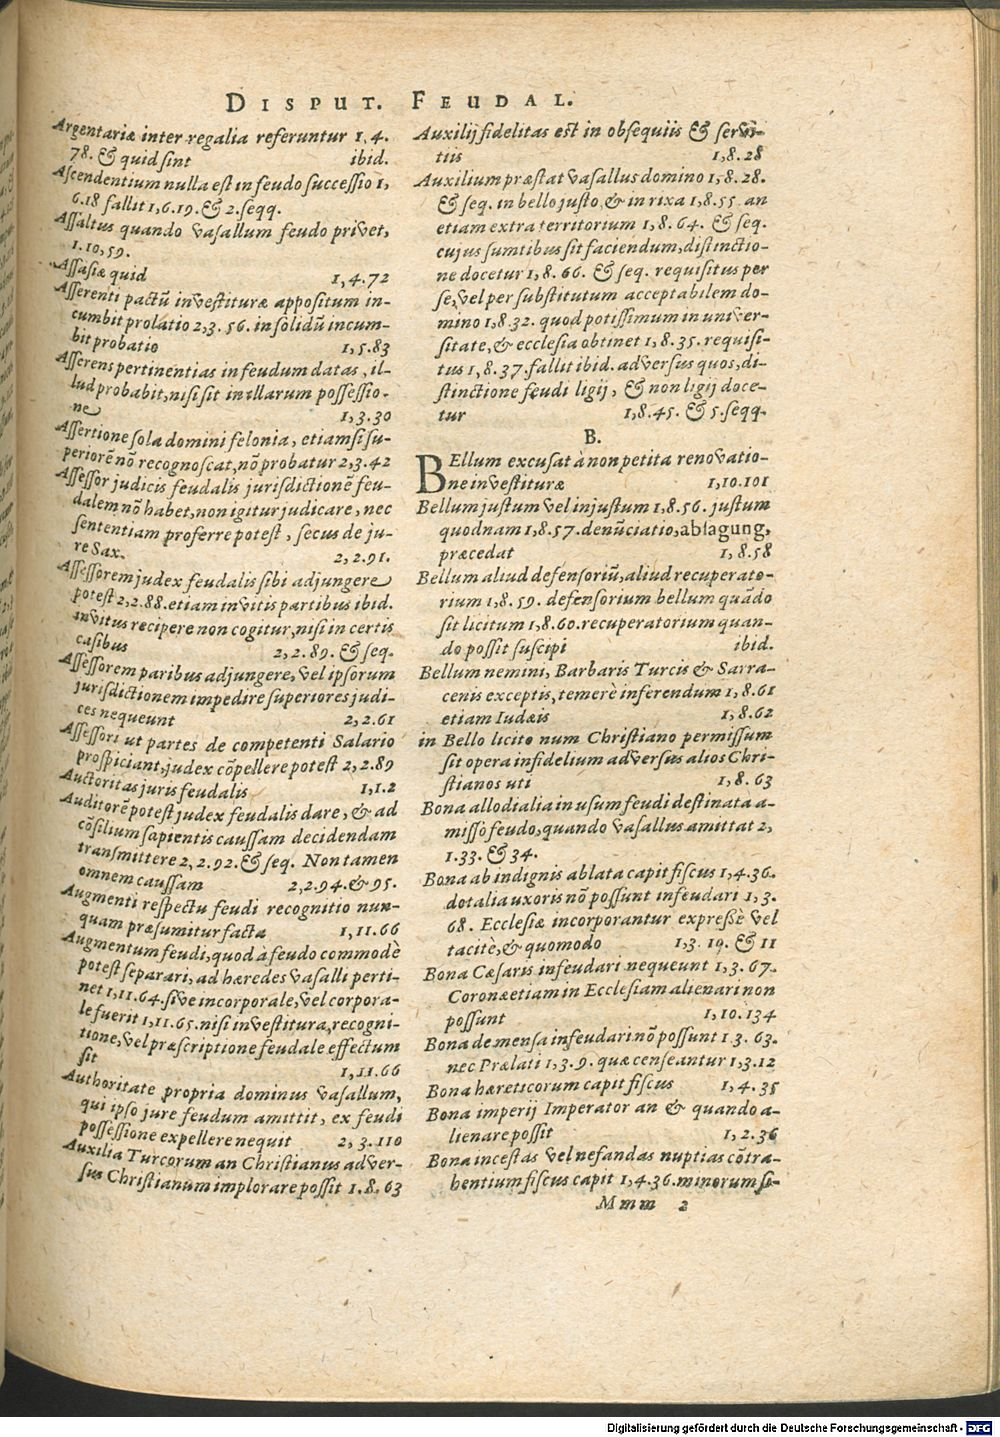 DISPUT. FEUDAL.
Argentariæ inter regalia referuntur 1, 4.
78. & quid sint ibid.
Ascendentium nulla est in feudo successio 1,
6.18 fallit 1, 6.19. & 2. seqq.
Assaltus quando vasallum feudo privet,
1. 10, 59.
Assasiæ quid 1, 4.72
Asserenti pactũ investituræ appositum in-
cumbit prolatio 2, 3. 56. in solidũ incum-
bit probatio 1, 5.83
Asserens pertinentias in feudum datas, il-
lud probabit, nisi sit in illarum possessio-
ne 1, 3.30
Assertione sola domini felonia, etiamsi su-
periorẽ nõ recognoscat, nõ probatur 2, 3.42
Assessor judicis feudalis jurisdictionẽ feu-
dalem nõ habet, non igitur judicare, nec
sententiam proferre potest, secus de ju-
re Sax. 2, 2.91.
Assessorem judex feudalis sibi adjungere
potest 2, 2.88. etiam invitis partibus ibid.
invitus recipere non cogitur, nisi in certis
casibus 2, 2.89. & seq.
Assessorem paribus adjungere, vel ipsorum
jurisdictionem impedire superiores judi-
ces nequeunt 2, 2.61
Assessori ut partes de competenti Salario
prospiciant, judex cõpellere potest 2, 2.89
Auctoritas juris feudalis 1, 1.2
Auditorẽ potest judex feudalis dare, & ad
cõsilium sapientis caussam decidendam
transmittere 2, 2.92. & seq. Non tamen
omnem caussam 2, 2.94. & 95.
Augmenti respectu feudi recognitio nun-
quam præsumitur facta 1, 11.66
Augmentum feudi, quod à feudo commodè
potest separari, ad hæredes vasalli perti-
net 1, 11.64. sive incorporale, vel corpora-
le fuerit 1, 11.65. nisi investitura, recogni-
tione, vel præscriptione feudale effectum
sit 1, 11.66
Authoritate propria dominus vasallum,
qui ipso jure feudum amittit, ex feudi
possessione expellere nequit 2, 3.110
Auxilia Turcorum an Christianus adver-
sus Christianum implorare possit 1. 8. 63
Auxilij fidelitas est in obsequiis & servi-
tiis 1, 8.28
Auxilium præstat vasallus domino 1, 8.28.
& seq. in bello justo, & in rixa 1, 8.55. an
etiam extra territorium 1, 8.64. & seq.
cujus sumtibus sit faciendum, distinctio-
ne docetur 1, 8. 66. & seq. requisitus per
se, vel per substitutum acceptabilem do-
mino 1, 8.32. quod potissimum in univer-
sitate, & ecclesia obtinet 1, 8.35. requisi-
tus 1, 8.37. fallit ibid. adversus quos, di-
stinctione feudi ligij, & non ligij doce-
tur 1, 8.45. & 5. seqq.
B.
BEllum excusat à non petita renovatio-
ne investituræ 1, 10.101
Bellum justum vel injustum 1, 8.56. justum
quodnam 1, 8.57. denũciatio, absagung,
præcedat 1, 8.58
Bellum aliud defensoriũ, aliud recuperato-
rium 1, 8.59. defensorium bellum quãdo
sit licitum 1, 8.60. recuperatorium quan-
do possit suscipi ibid.
Bellum nemini, Barbaris Turcis & Sarra-
cenis exceptis, temerè inferendum 1, 8.61
etiam Iudæis 1, 8.62
in Bello licito num Christiano permissum
sit opera infidelium adversus alios Chri-
stianos uti 1, 8. 63
Bona allodialia in usum feudi destinata a-
misso feudo, quando vasallus amittat 2,
1.33. & 34.
Bona ab indignis ablata capit fiscus 1, 4.36.
dotalia uxoris nõ possunt infeudari 1, 3.
68. Ecclesiæ incorporantur expressè vel
tacitè, & quomodo 1, 3. 19. & 11
Bona Cæsaris infeudari nequeunt 1, 3.67.
Coronæ etiam in Ecclesiam alienari non
possunt 1, 10.134
Bona de mensa infeudari nõ possunt 1 3. 63.
nec Prælati 1, 3.9. quæ censeantur 1, 3.12
Bona hæreticorum capit fiscus 1, 4.35
Bona imperij Imperator an & quando a-
lienare possit 1, 2.36
Bona incestas vel nefandas nuptias cõtra-
hentium fiscus capit 1, 4.36. minorum se-
Mmm 2
Digitalisierung gefördert durch die Deutsche Forschungsgemeinschaft - DFG